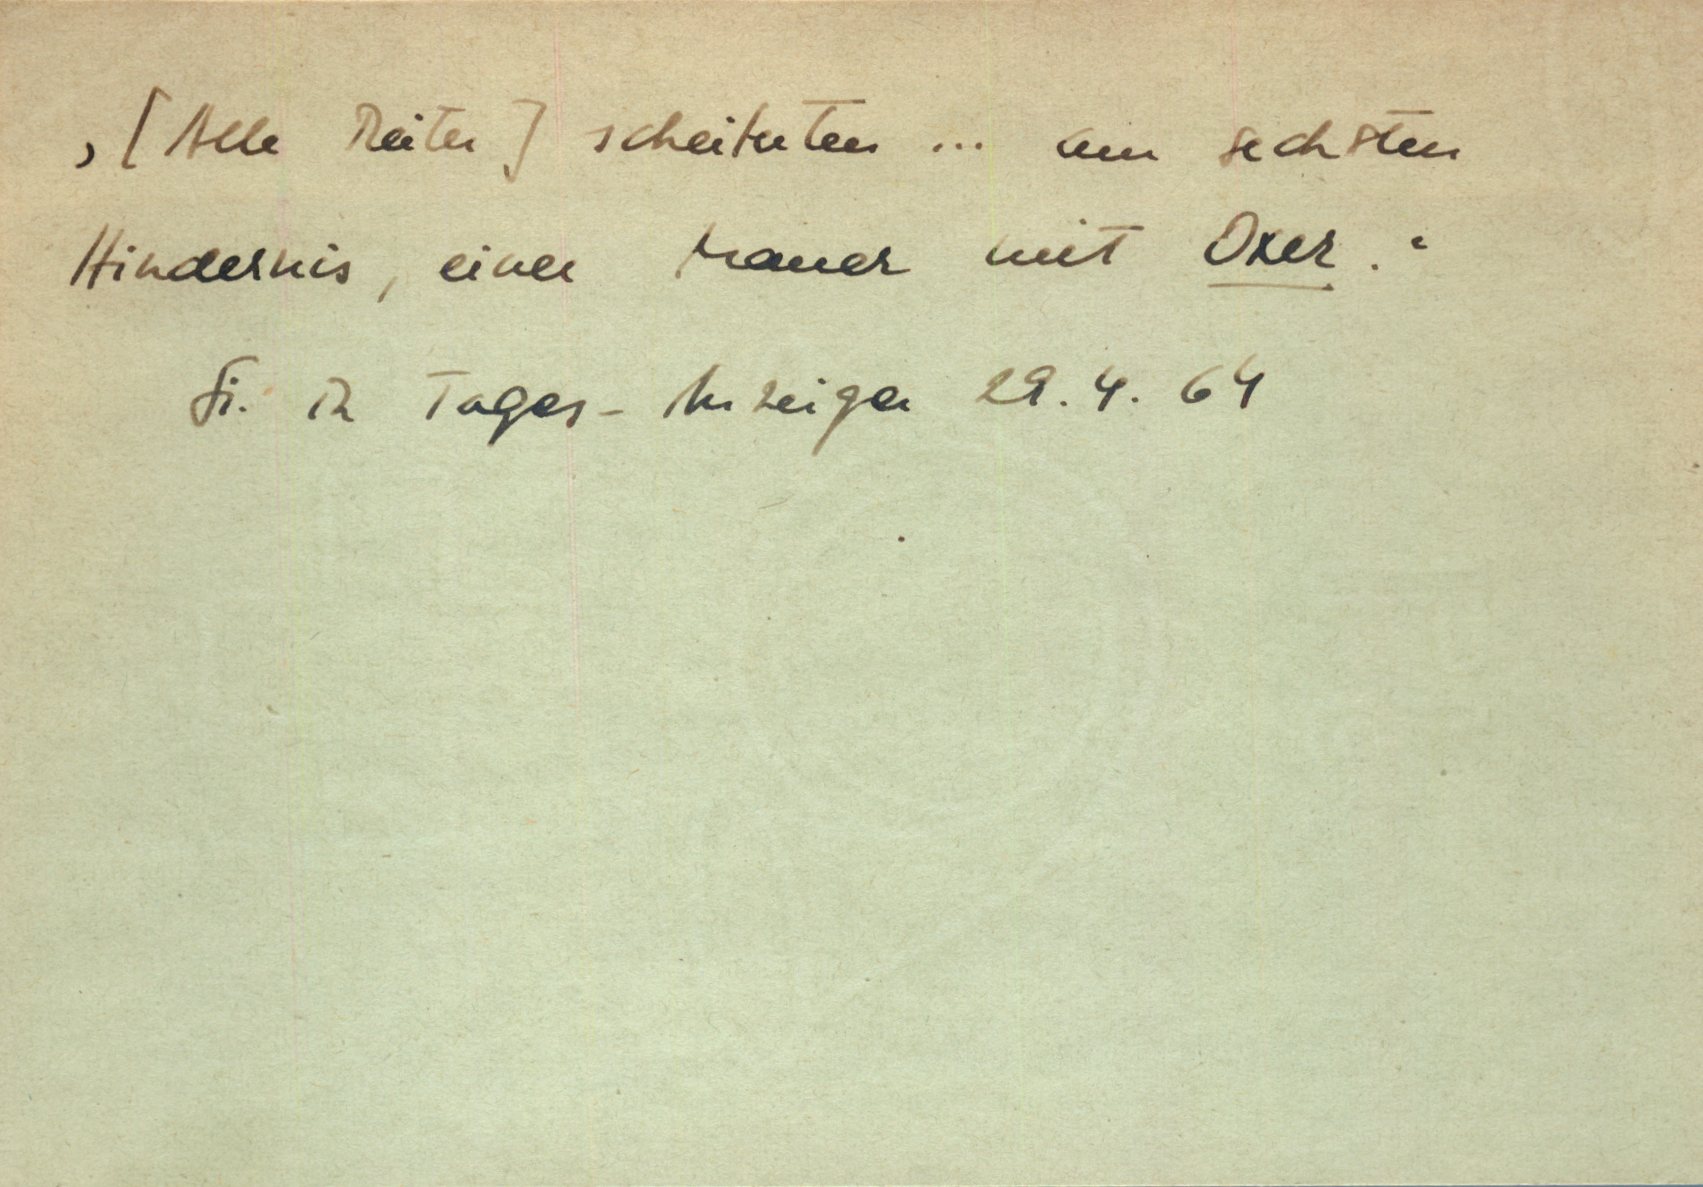 ‚[Alle Reiter] scheiterten ... am sechsten
Hindernis, einer Mauer mit Oxer.‘
Fi. in Tages-Anzeiger 29.4.64